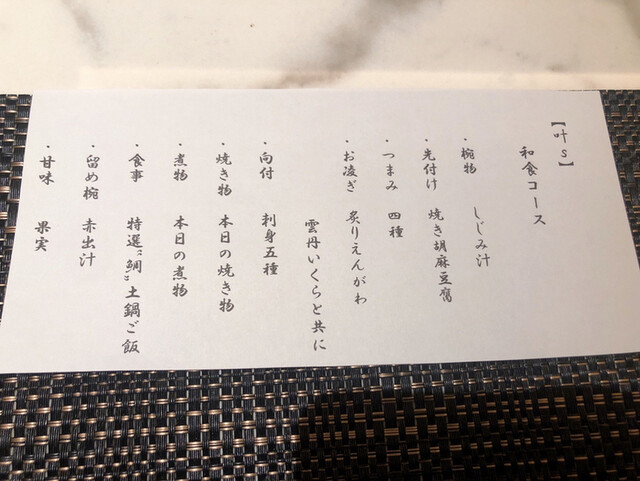 【叶s】
和食コース
・椀物 しじみ汁
・先付け 焼き胡麻豆腐
・つまみ 四種
・お凌ぎ 炙りえんがわ
雲丹いくらと共に
・向付 刺身五種
・焼き物 本日の焼き物
・煮物 本日の煮物
・食事 特選"鯛"土鍋ご飯
・留め椀 赤出汁
・甘味 果実